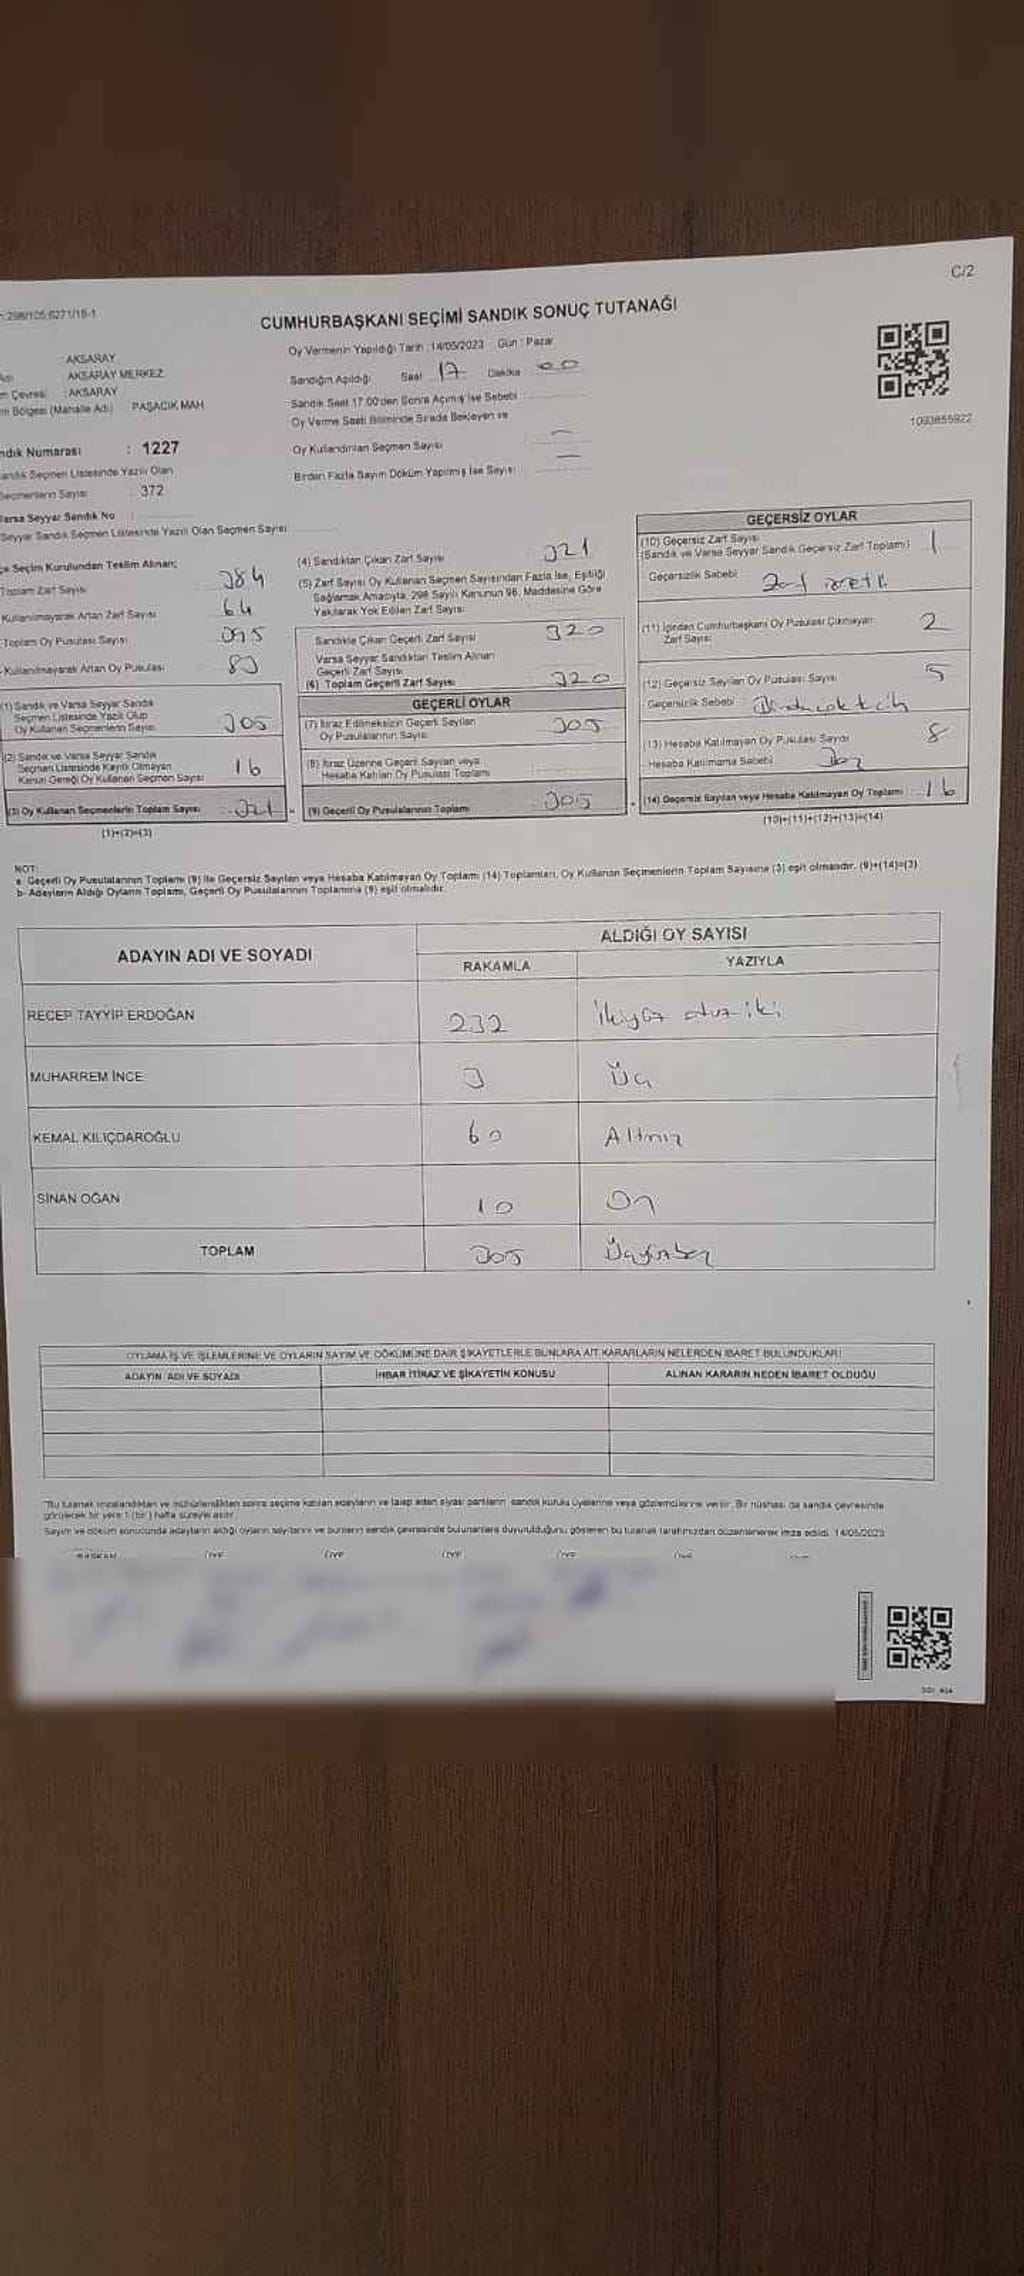 C/2
CUMHURBAŞKANI SEÇİMİ SANDIK SONUÇ TUTANAĞI
Oy Vermenin Yapıldığı Tarih : 14/05/2023 Gün : Pazar
AKSARAY
AKSARAY MERKEZ
m Çevresi : AKSARAY
m Bölgesi (Mahalle Adı) PAŞACIK MAH
Sandığın Açıldığı Saat 17 Dakika 00
Sandık Saat 17:00'den Sonra Açılmış İse Sebebi :
Oy Verme Saati Bitiminde Sırada Bekleyen ve
Oy Kullandırılan Seçmen Sayısı : —
Birden Fazla Sayım Döküm Yapılmış İse Sayısı : —
1093855922
ndık Numarası : 1227
andık Seçmen Listesinde Yazılı Olan
Seçmenlerin Sayısı : 372
Varsa Seyyar Sandık No :
Seyyar Sandık Seçmen Listesinde Yazılı Olan Seçmen Sayısı :
çe Seçim Kurulundan Teslim Alınan;
Toplam Zarf Sayısı : 384
Kullanılmayarak Artan Zarf Sayısı : 64
Toplam Oy Pusulası Sayısı :
Kullanılmayarak Artan Oy Pusulası : 83
(1) Sandık ve Varsa Seyyar Sandık
Seçmen Listesinde Yazılı Olup
Oy Kullanan Seçmenlerin Sayısı : 305
(2) Sandık ve Varsa Seyyar Sandık
Seçmen Listesinde Kayıtlı Olmayan
Kanun Gereği Oy Kullanan Seçmen Sayısı : 16
(3) Oy Kullanan Seçmenlerin Toplam Sayısı : 321
(1)+(2)=(3)
(4) Sandıktan Çıkan Zarf Sayısı : 321
(5) Zarf Sayısı Oy Kullanan Seçmen Sayısından Fazla İse, Eşitliği
Sağlamak Amacıyla, 298 Sayılı Kanunun 98. Maddesine Göre
Yakılarak Yok Edilen Zarf Sayısı :
Sandıkta Çıkan Geçerli Zarf Sayısı 320
Varsa Seyyar Sandıktan Teslim Alınan
Geçerli Zarf Sayısı
(6) Toplam Geçerli Zarf Sayısı 320
GEÇERLİ OYLAR
(7) İtiraz Edilmeksizin Geçerli Sayılan
Oy Pusulalarının Sayısı 305
(8) İtiraz Üzerine Geçerli Sayılan veya
Hesaba Katılan Oy Pusulası Toplamı
(9) Geçerli Oy Pusulalarının Toplamı 305
GEÇERSİZ OYLAR
(10) Geçersiz Zarf Sayısı
(Sandık ve Varsa Seyyar Sandık Geçersiz Zarf Toplamı) 1
Geçersizlik Sebebi :
(11) İçinden Cumhurbaşkanı Oy Pusulası Çıkmayan
Zarf Sayısı 2
(12) Geçersiz Sayılan Oy Pusulası Sayısı 5
Geçersizlik Sebebi
(13) Hesaba Katılmayan Oy Pusulası Sayısı 8
Hesaba Katılmama Sebebi
(14) Geçersiz Sayılan veya Hesaba Katılmayan Oy Toplamı : 16
(10)+(11)+(12)+(13)=(14)
NOT:
a- Geçerli Oy Pusulalarının Toplamı (9) ile Geçersiz Sayılan veya Hesaba Katılmayan Oy Toplamı (14) Toplamları, Oy Kullanan Seçmenlerin Toplam Sayısına (3) eşit olmalıdır. (9)+(14)=(3)
b- Adayların Aldığı Oyların Toplamı, Geçerli Oy Pusulalarının Toplamına (9) eşit olmalıdır.
ADAYIN ADI VE SOYADI
ALDIĞI OY SAYISI
RAKAMLA YAZIYLA
RECEP TAYYİP ERDOĞAN 232 İkiyüz otuz iki
MUHARREM İNCE 3 Üç
KEMAL KILIÇDAROĞLU 60 Altmız
SİNAN OĞAN 10 On
TOPLAM 305 Üçyüzbeş
OYLAMA İŞ VE İŞLEMLERİNE VE OYLARIN SAYIM VE DÖKÜMÜNE DAİR ŞİKAYETLERLE BUNLARA AİT KARARLARIN NELERDEN İBARET BULUNDUKLARI
ADAYIN ADI VE SOYADI İHBAR İTİRAZ VE ŞİKAYETİN KONUSU ALINAN KARARIN NEDEN İBARET OLDUĞU
"Bu tutanak imzalandıktan ve mühürlendikten sonra seçime katılan adayların ve talep eden siyasi partilerin sandık kurulu üyelerine veya gözlemcilerine verilir. Bir nüshası da sandık çevresinde
görülecek bir yere 1 (bir) hafta süreyle asılır.
Sayım ve döküm sonucunda adayların aldığı oyların sayılarını ve bunların sandık çevresinde bulunanlara duyurulduğunu gösteren bu tutanak tarafımızdan düzenlenerek imza edildi. 14/05/2023
BAŞKAN ÜYE ÜYE ÜYE ÜYE ÜYE